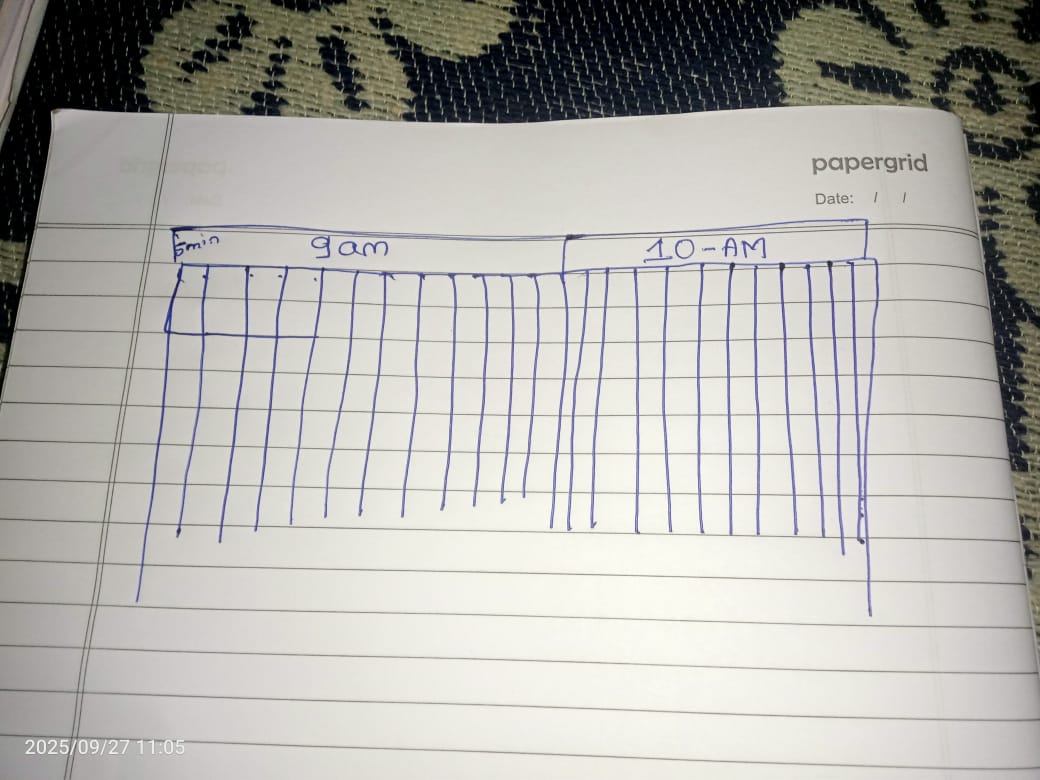 papergrid
Date: / /
5min 9am 10-AM
2025/09/27 11:05